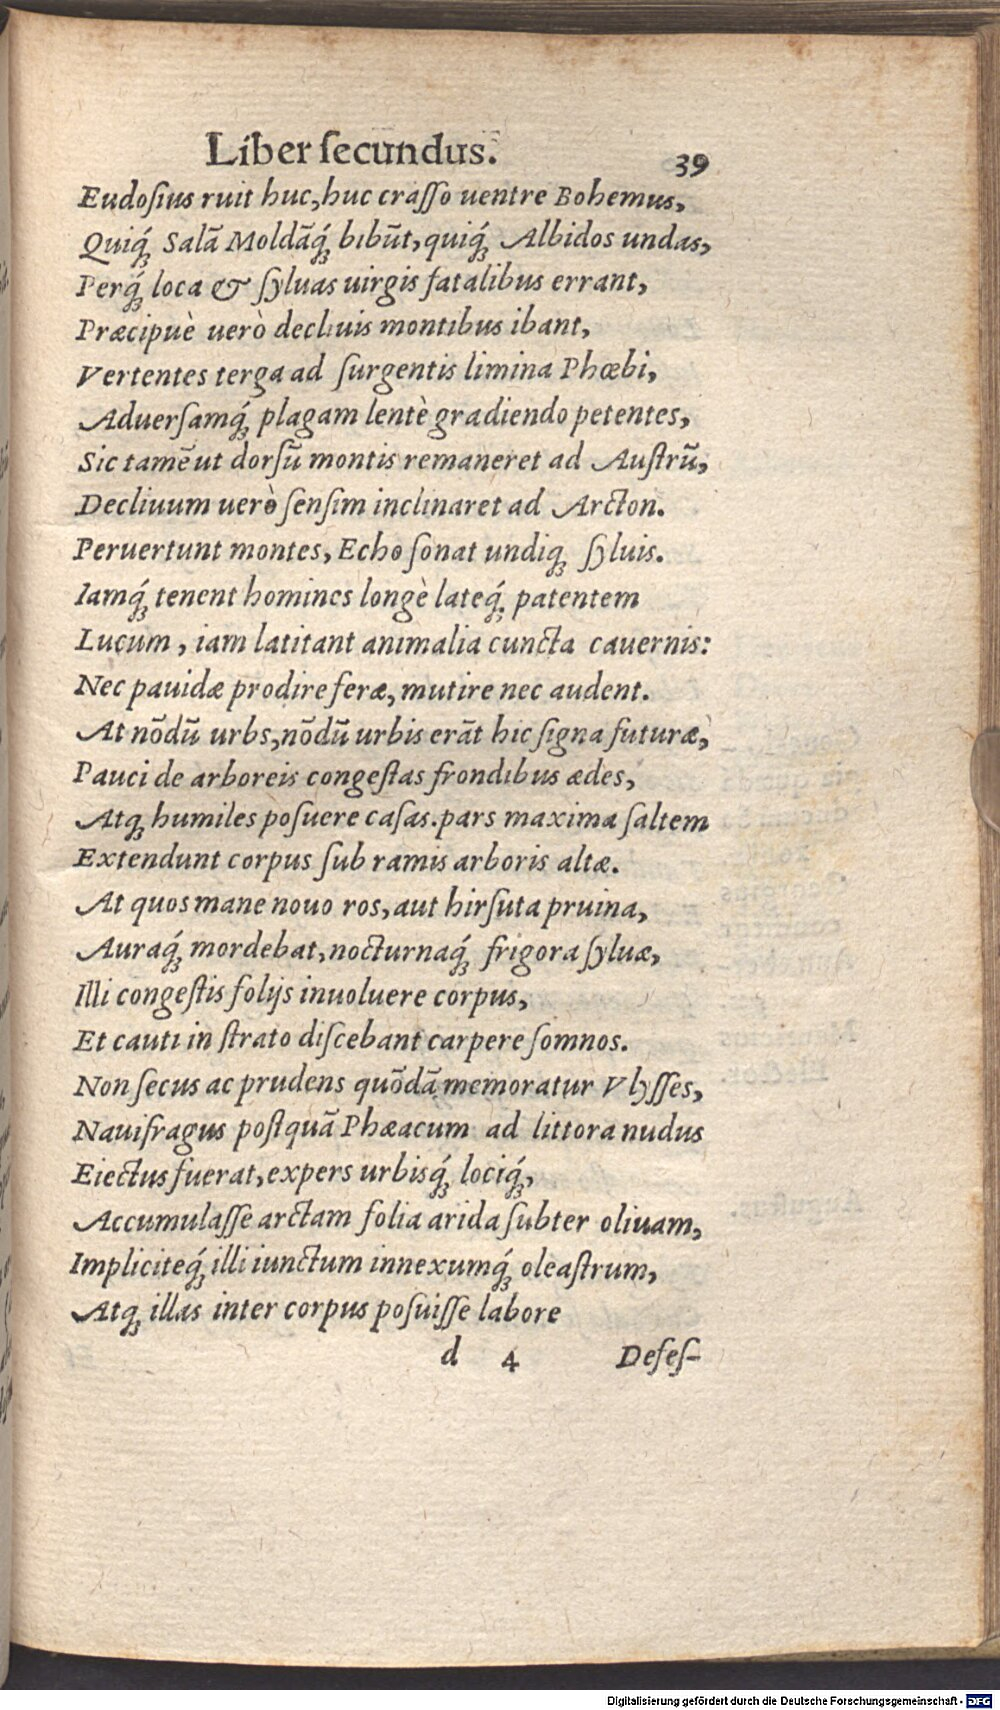 Liber ſecundus. 39
Eudoſius ruit huc, huc craſſo uentre Bohemus,
Quiq́ꝫ Salā Moldāq́ꝫ bibūt, quiq́ꝫ Albidos undas,
Perq́ꝫ loca & ſyluas uirgis fatalibus errant,
Præcipuè uerò decliuis montibus ibant,
Vertentes terga ad ſurgentis limina Phœbi,
Aduerſamq́ꝫ plagam lentè gradiendo petentes,
Sic tamē ut dorſū montis remaneret ad Auſtrū,
Decliuum uerò ſenſim inclinaret ad Arcton.
Peruertunt montes, Echo ſonat undiqꝫ ſyluis.
Iamq́ꝫ tenent homines longè lateq́ꝫ patentem
Lucum, iam latitant animalia cuncta cauernis:
Nec pauidæ prodire feræ, mutire nec audent.
At nōdū urbs, nōdū urbis erāt hic ſigna futuræ,
Pauci de arboreis congeſtas frondibus ædes,
Atqꝫ humiles poſuere caſas. pars maxima ſaltem
Extendunt corpus ſub ramis arboris altæ.
At quos mane nouo ros, aut hirſuta pruina,
Auraq́ꝫ mordebat, nocturnaq́ꝫ frigora ſyluæ,
Illi congeſtis folijs inuoluere corpus,
Et cauti in ſtrato diſcebant carpere ſomnos.
Non ſecus ac prudens quōdā memoratur Vlyſſes,
Nauifragus poſtquā Phæacum ad littora nudus
Eiectus fuerat, expers urbisq́ꝫ lociq́ꝫ,
Accumulaſſe arctam folia arida ſubter oliuam,
Impliciteq́ꝫ illi iunctum innexumq́ꝫ oleaſtrum,
Atqꝫ illas inter corpus poſuiſſe labore
d 4 Defeſ-
Digitalisierung gefördert durch die Deutsche Forschungsgemeinschaft - DFG